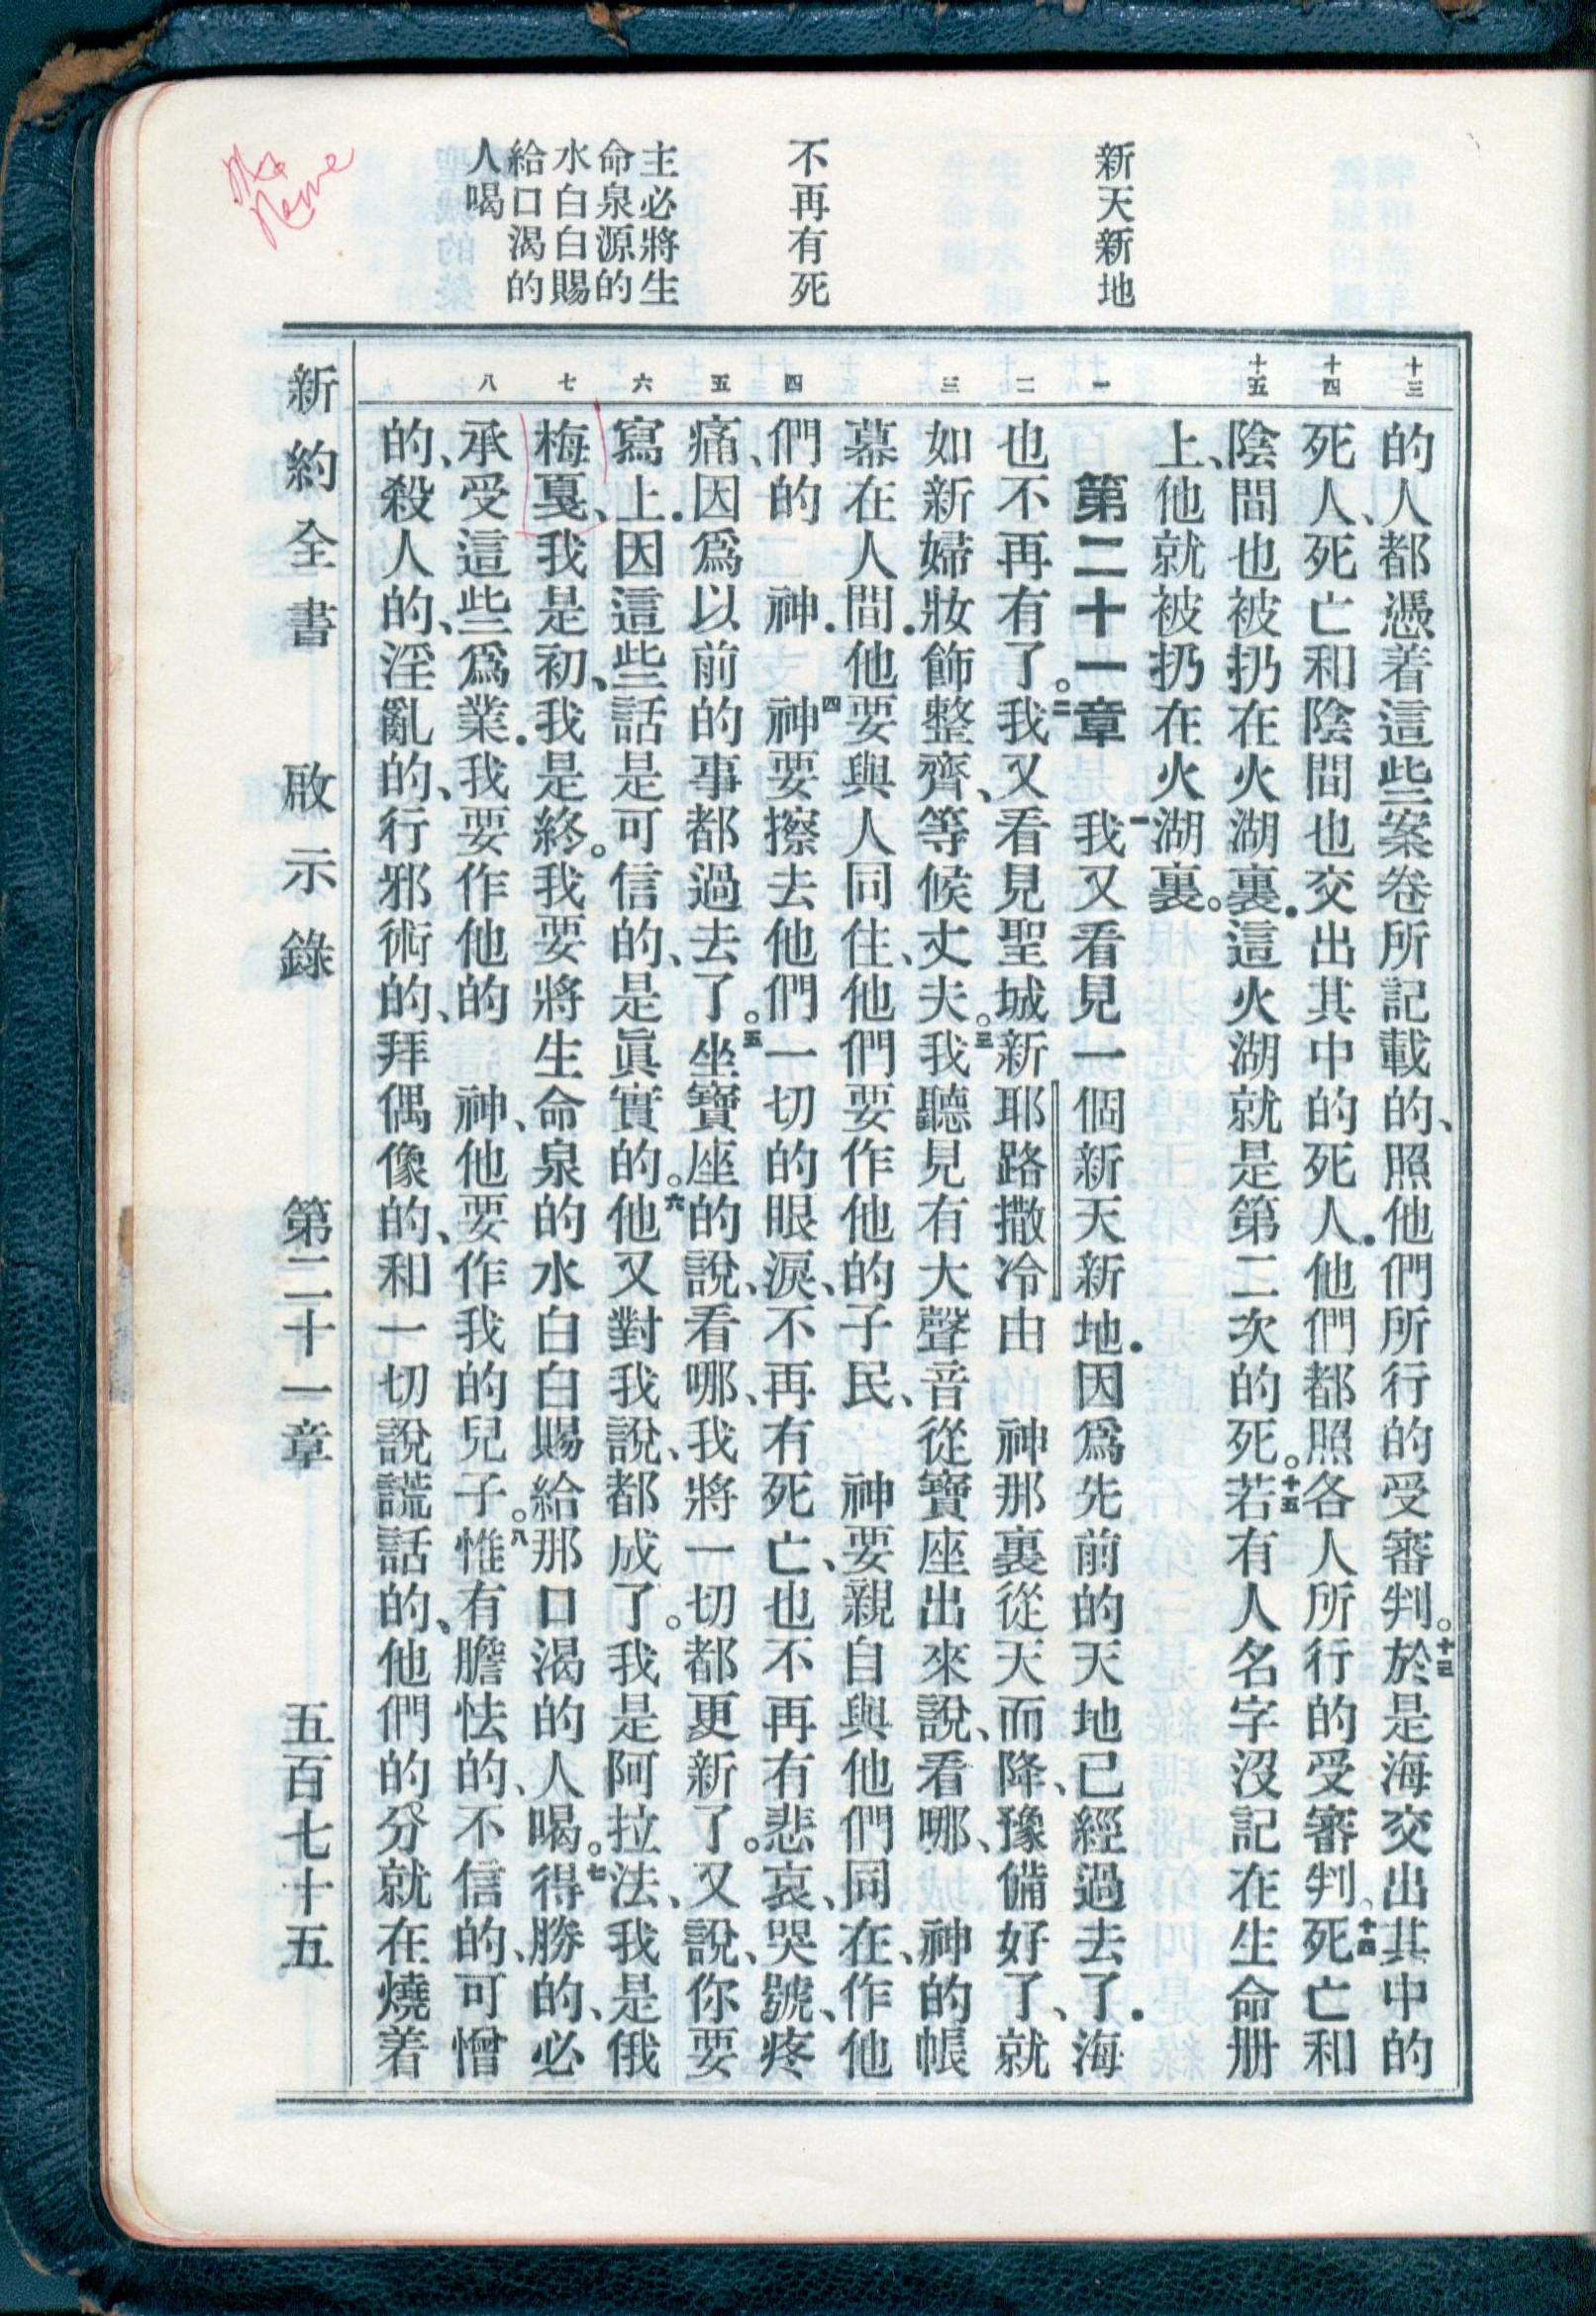 新天新地
不再有死
主必將生
命泉源的
水白白賜
給口渴的
人喝
His
Name
十三
十四
十五
一
二
三
四
五
六
七
八
的人都憑着這些案卷所記載的、照他們所行的受審判。十三於是海交出其中的
死人、死亡和陰間也交出其中的死人.他們都照各人所行的受審判。十四死亡和
陰間也被扔在火湖裏.這火湖就是第二次的死。十五若有人名字沒記在生命册
上、他就被扔在火湖裏。
第二十一章　一我又看見一個新天新地.因爲先前的天地已經過去了.海
也不再有了。二我又看見聖城新耶路撒冷由　神那裏從天而降、豫備好了、就
如新婦妝飾整齊、等候丈夫。三我聽見有大聲音從寶座出來說、看哪、　神的帳
幕在人間.他要與人同住、他們要作他的子民、　神要親自與他們同在、作他
們的　神.　四神要擦去他們一切的眼淚、不再有死亡、也不再有悲哀、哭號、疼
痛、因爲以前的事都過去了。五坐寶座的說、看哪、我將一切都更新了。又說、你要
寫上.因這些話是可信的、是眞實的。六他又對我說、都成了。我是阿拉法、我是俄
梅戛、我是初、我是終。我要將生命泉的水白白賜給那口渴的人喝。七得勝的、必
承受這些爲業.我要作他的　神、他要作我的兒子。八惟有膽怯的、不信的、可憎
的、殺人的、淫亂的、行邪術的、拜偶像的、和一切說謊話的、他們的分就在燒着
新約全書　啟示錄　第二十一章　五百七十五